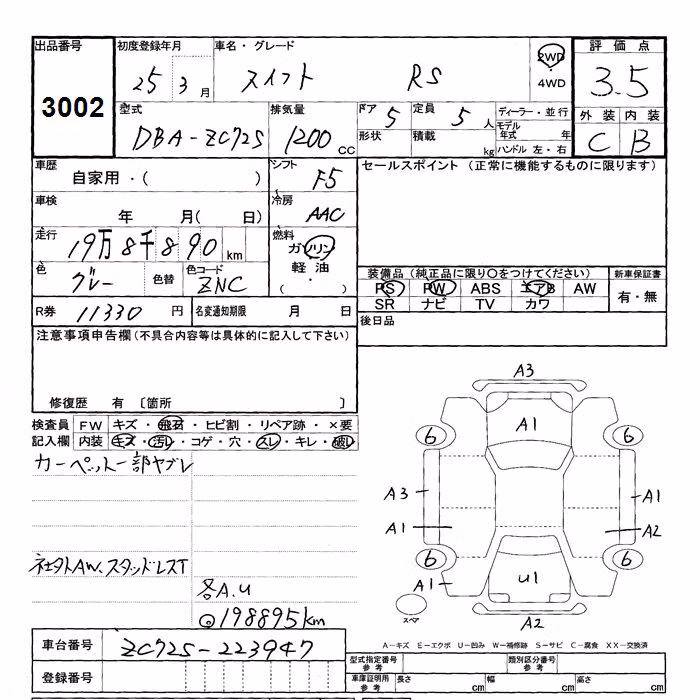 出品番号 初度登録年月 車名・グレード 評価点
3002 25 3月 スイフト RS 2WD ・ 4WD 3.5
型式 排気量 ドア 5 定員 5人 ディーラー・並行 外装 内装
DBA-ZC72S 1200 CC 形状 積載 kg モデル年式 年 C B
ハンドル 左・右
車歴 シフト F5 セールスポイント (正常に機能するものに限ります)
自家用・( )
車検 冷房 AAC
年 月( 日)
走行 19万8千890km 燃料 ガソリン
軽油
・
( )
色 グレー 色替 色コード ZNC 装備品(純正品に限り○をつけてください) 新車保証書
PS PW ABS エアB AW 有・無
SR ナビ TV カワ
R券 11330 円 名変通知期限 月 日 後日品
注意事項申告欄(不具合内容等は具体的に記入して下さい)
修復歴 有 〔箇所 〕
検査員 FW キズ・飛石・ヒビ割・リペア跡・×要
記入欄 内装 キズ・汚レ・コゲ・穴・スレ・キレ・破レ
カーペット一部ヤブレ
社外AW、スタッドレスT
各A.U
◎198895km
A3
A1
6 6
A3 A1
A1 A2
6 6
A1 U1
スペア
A2
A-キズ E-エクボ U-凹み W-補修跡 S-サビ C-腐食 XX-交換済
車台番号 ZC72S-223947 型式指定番号 参考 類別区分番号 参考
登録番号 車庫証明用 参考 長さ cm 幅 cm 高さ cm